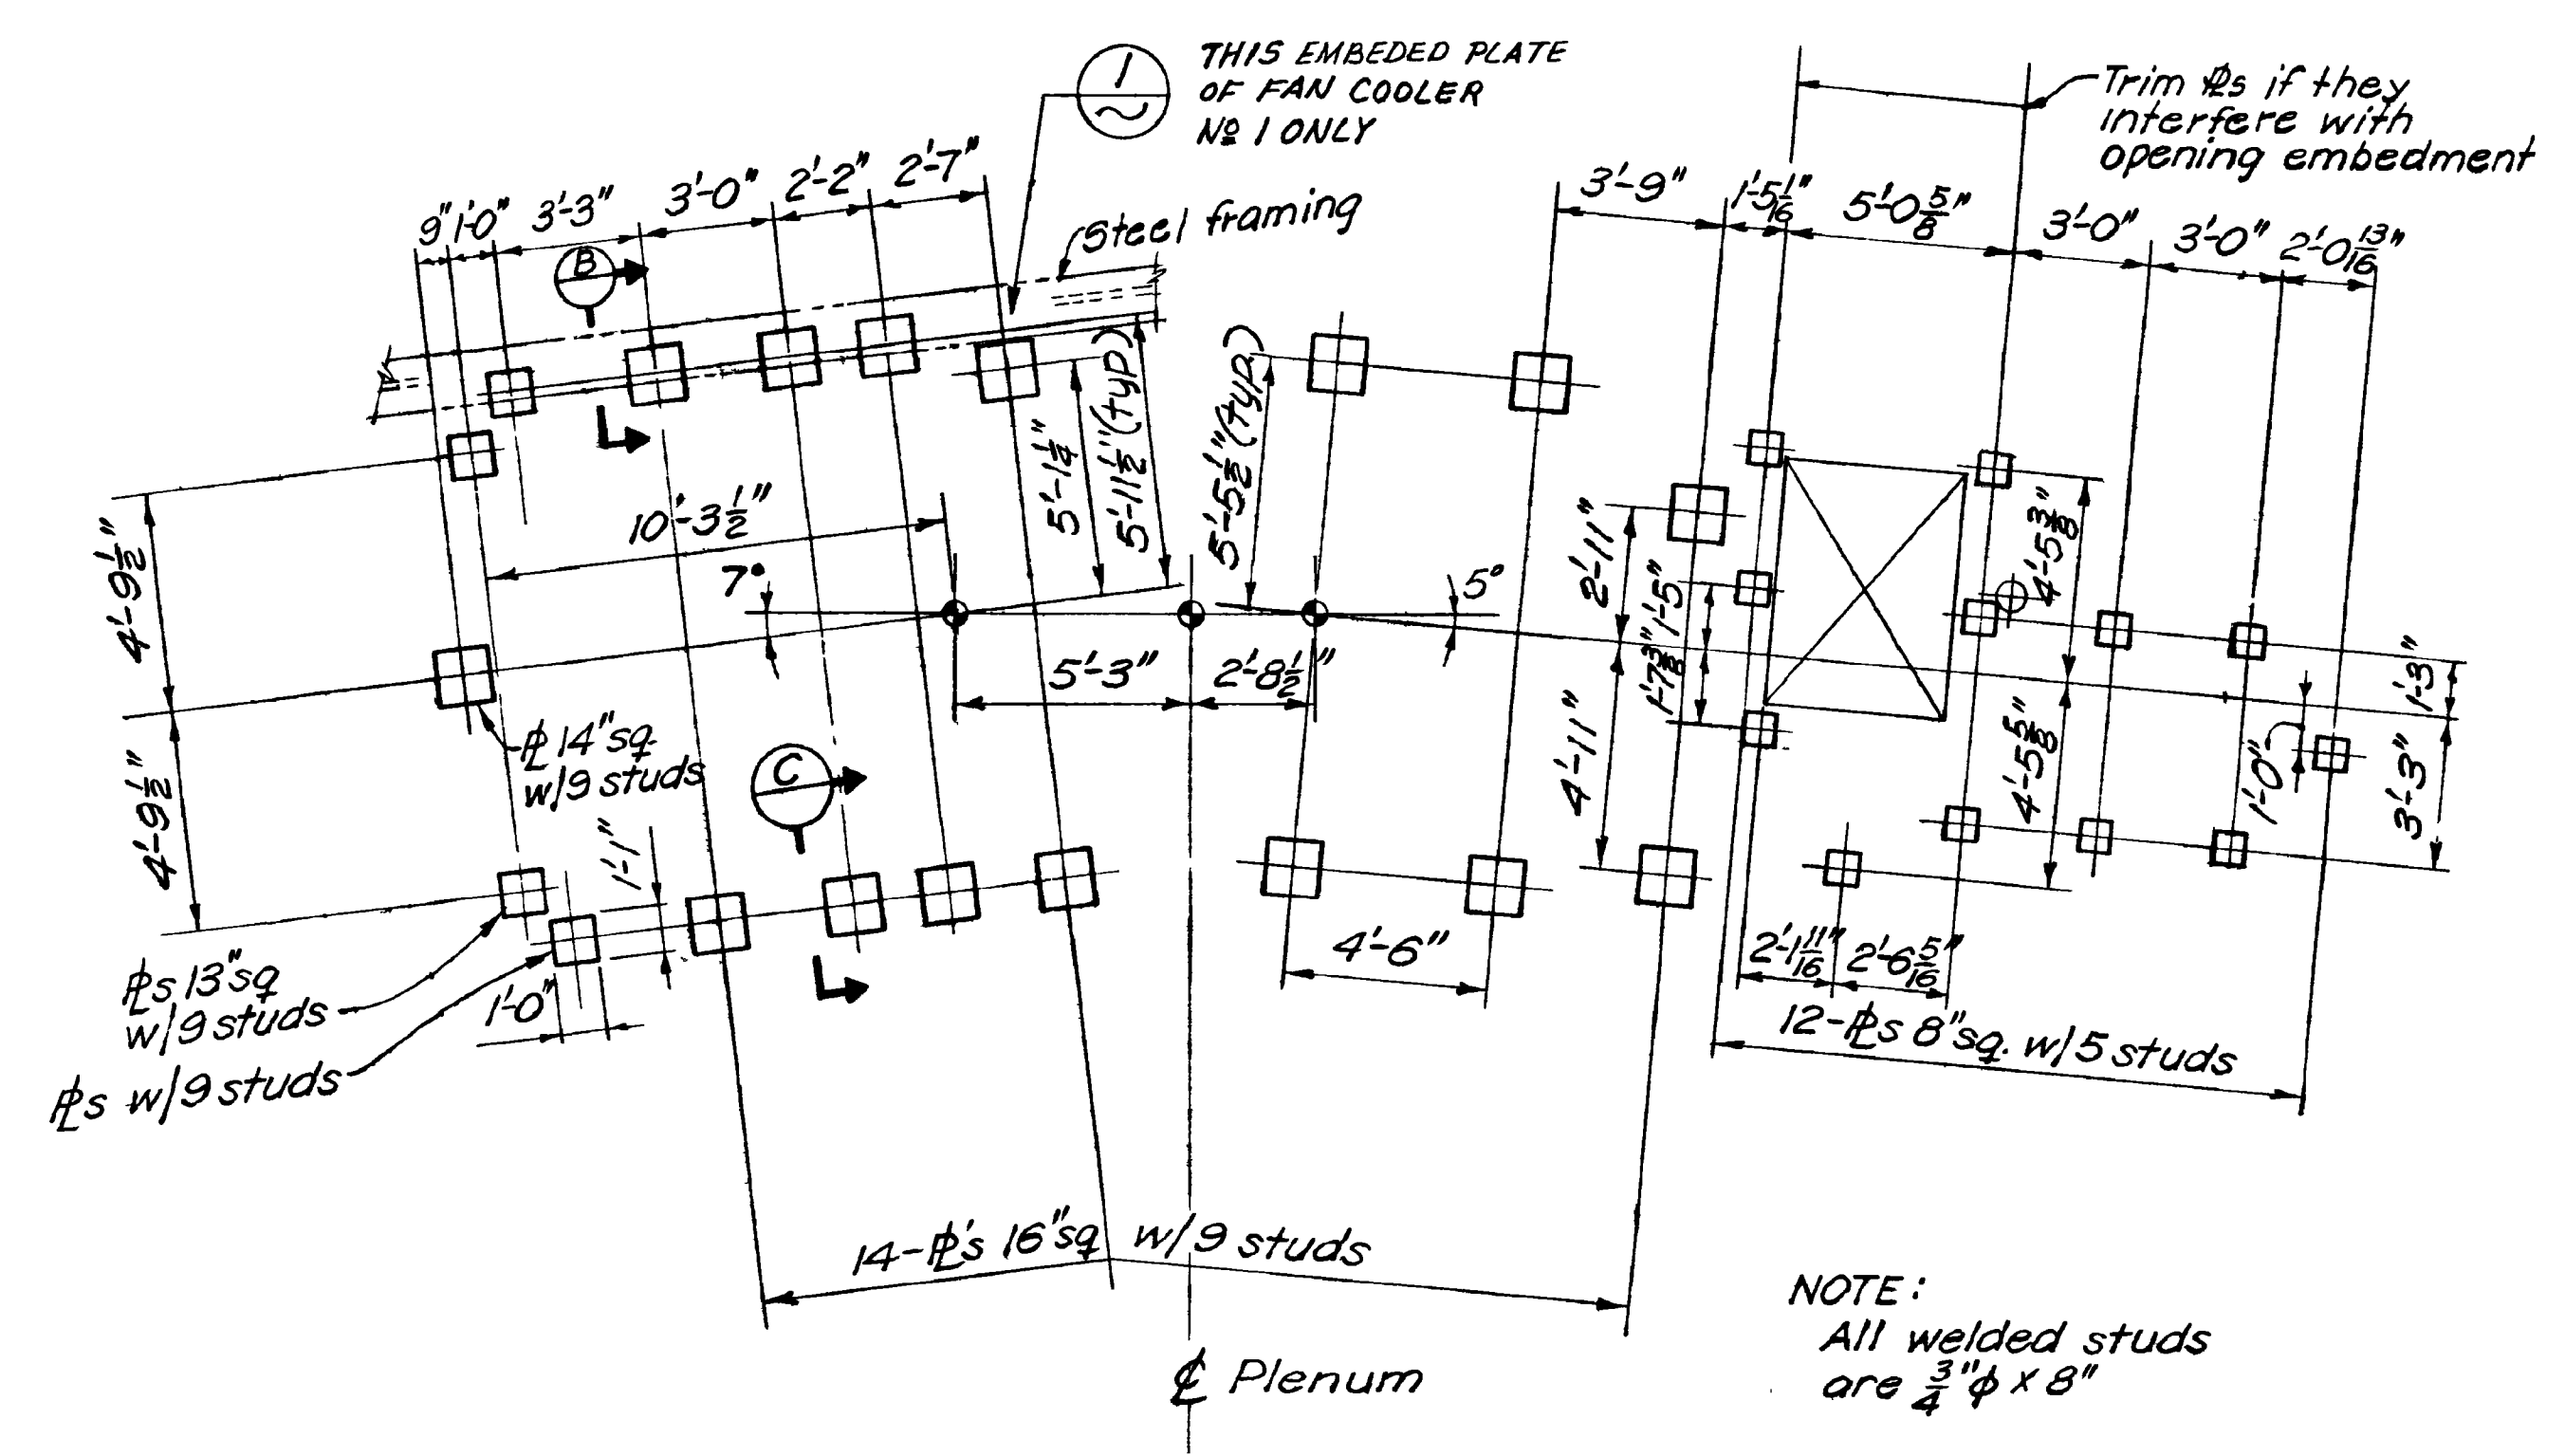 1
THIS EMBEDED PLATE
OF FAN COOLER
Nº 1 ONLY
Trim ℄s if they
interfere with
opening embedment
9" 1'-0" 3'-3" 3'-0" 2'-2" 2'-7"
Steel framing
3'-9" 1'-5 1/16" 5'-0 5/8" 3'-0" 3'-0" 2'-0 13/16"
B
10'-3 1/2"
5'-1 1/4"
5'-11 1/2" (typ)
5'-5 1/2" (typ.)
7°
5°
4'-9 1/2"
4'-9 1/2"
2'-11"
4'-11"
1'-5"
1'-7 3/8"
4'-5 3/8"
4'-5 5/8"
1'-3"
3'-3"
1'-0"
5'-3" 2'-8 1/2"
PL 14" sq.
w/9 studs
C
1'-1"
1'-0"
PLs 13" sq
w/9 studs
PLs w/9 studs
4'-6"
2'-1 11/16" 2'-6 5/16"
12-PLs 8" sq. w/5 studs
14-PL's 16" sq w/9 studs
℄ Plenum
NOTE:
All welded studs
are 3/4"φ x 8"